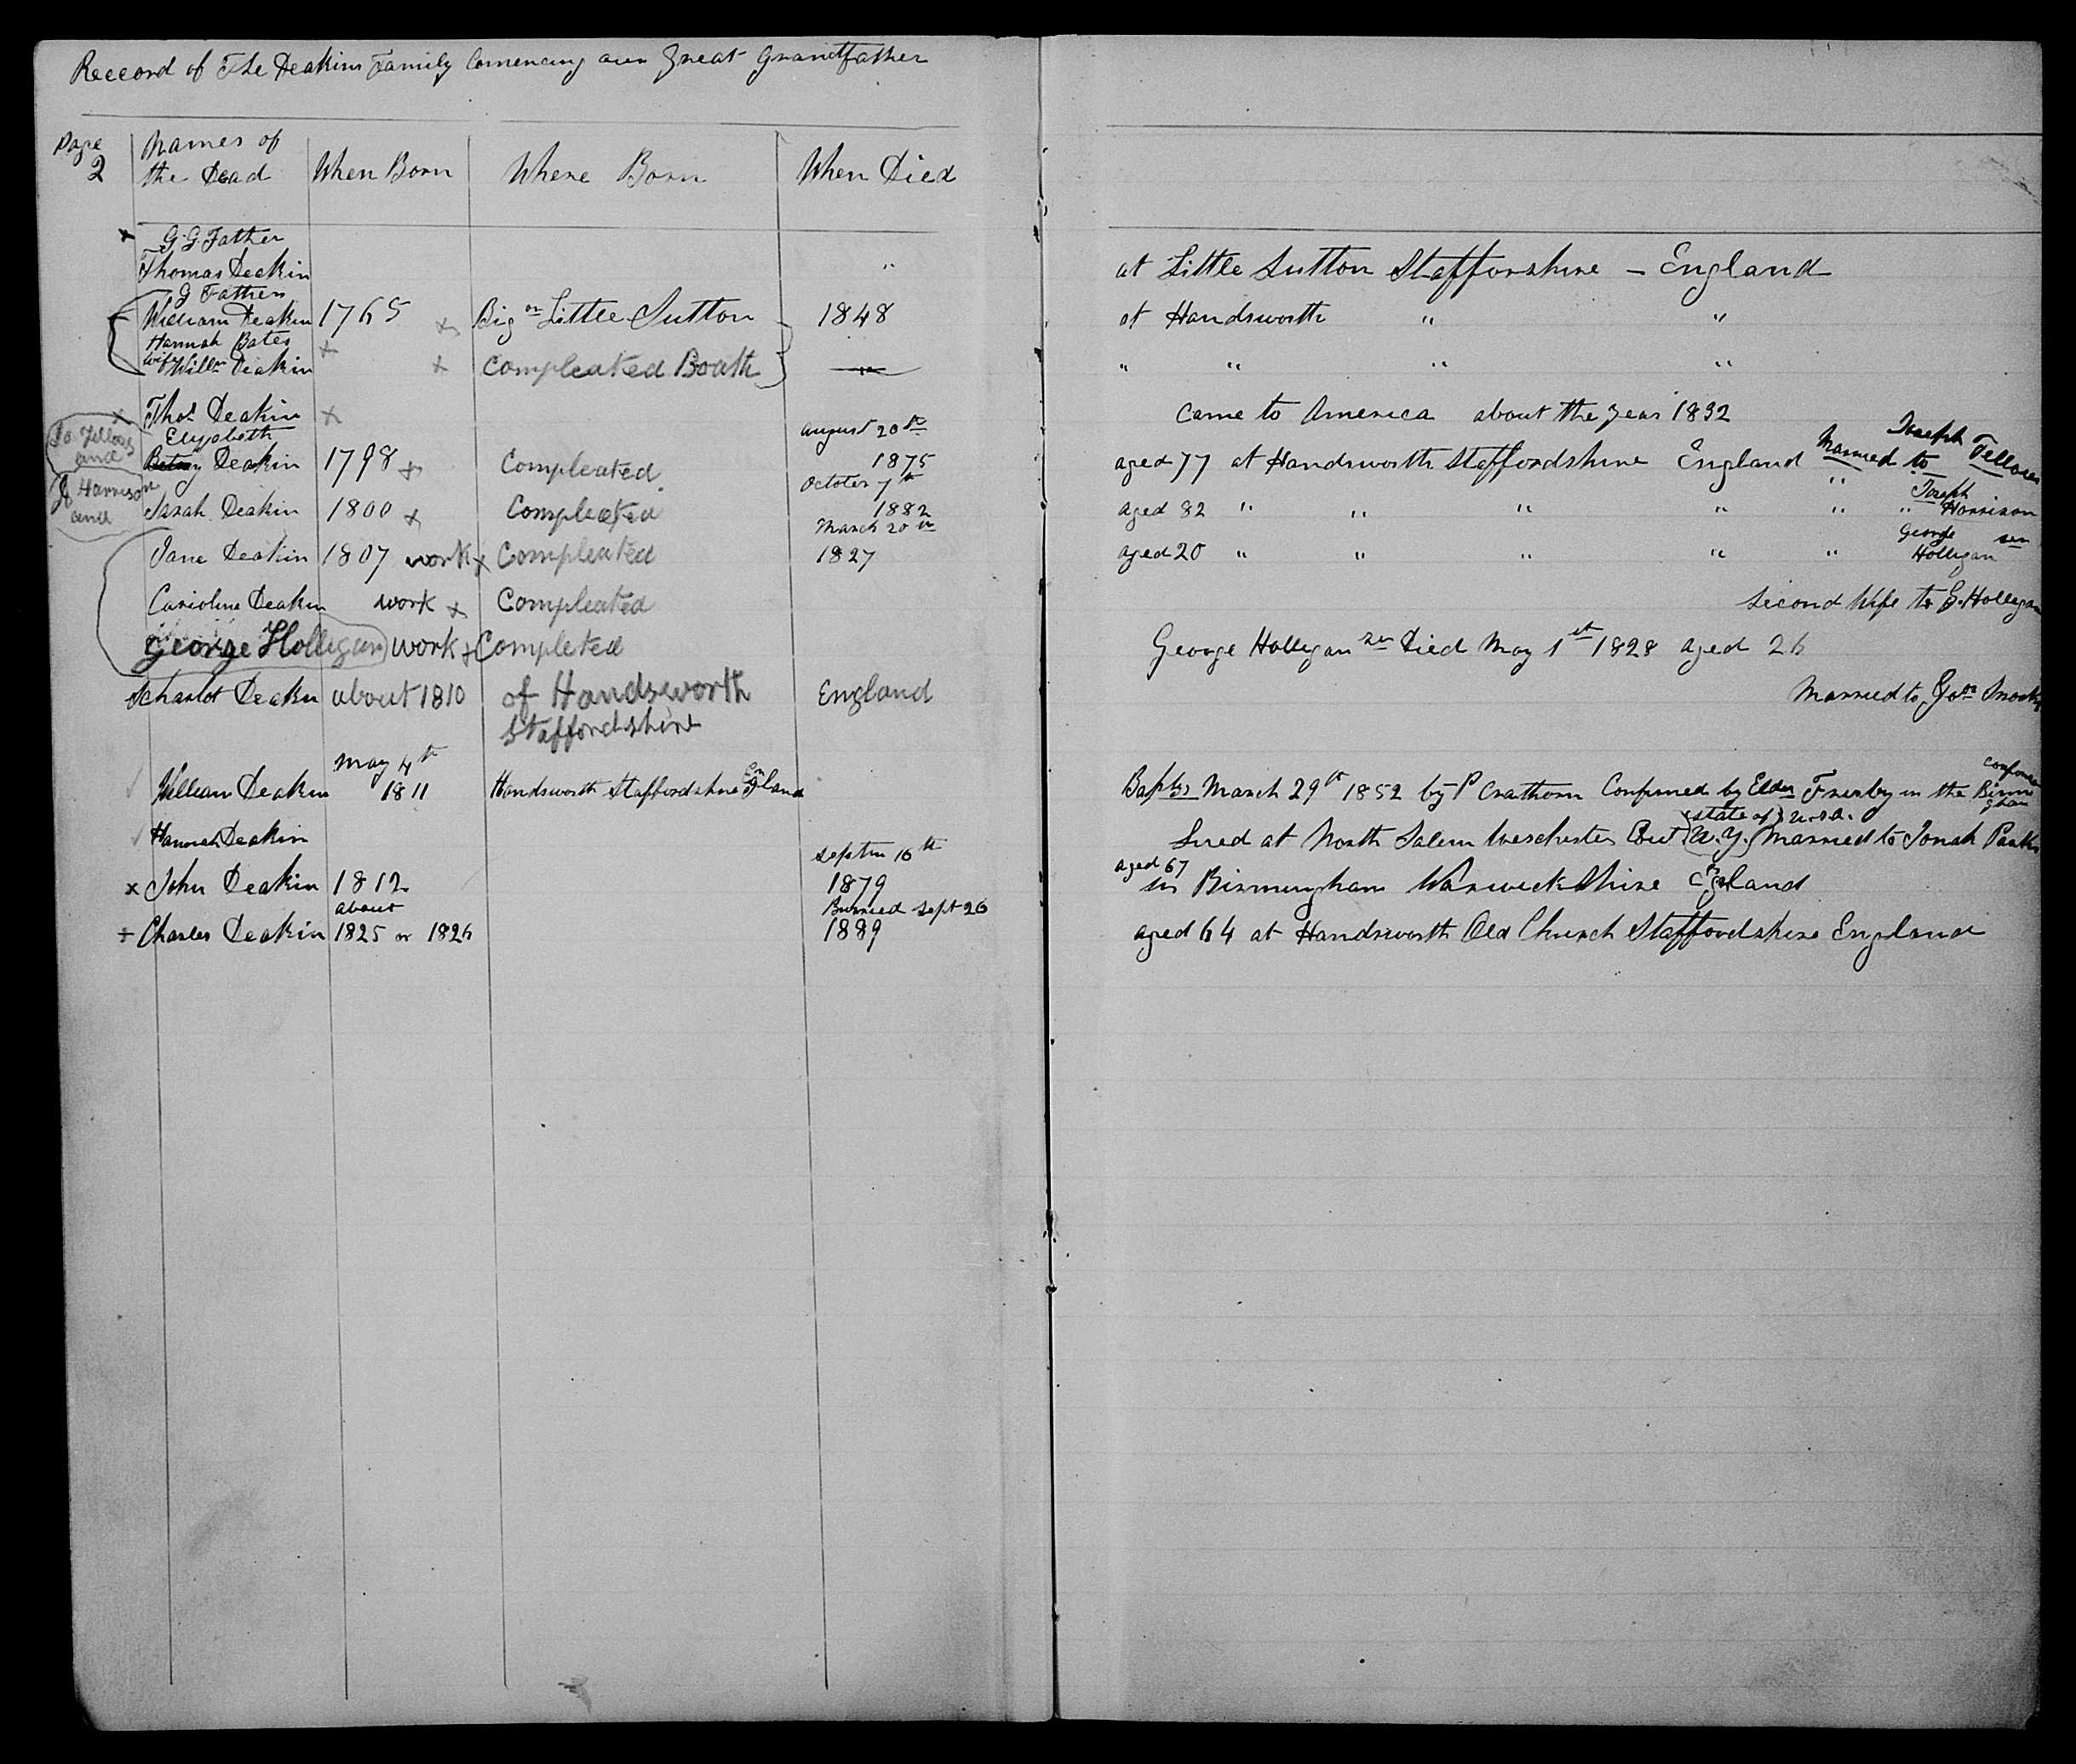 Reccord of The Deakin Family Comencing our Great Grandfather
Page 2
Names of the Dead
When Born
Where Born
When Died
x G. G. Father
Thomas Deakin
at Little Sutton Stafforshire - England
G Father
William Deakin 1765 x Big or Little Sutton 1848 at Handsworth " "
Hannah Bates x
wife Willm Deakin x Compleated Boath " " " "
x Thos Deakin x came to America about the year 1832
Jo. Fellows and
Elizabeth
Betsey Deakin 1798 x Compleated August 20th 1875 aged 77 at Handsworth Staffordshire England Married to Joseph Fellows
J Harrison and
Sarah Deakin 1800 x Compleated October 7th 1882 aged 82 " " " " " " Joseph Harrison
Jane Deakin 1807 work x Compleated March 20th 1827 aged 20 " " " " " George sen Holligan
Carioline Deakin work x Compleated second Wife to G. Holligan
George Holligan work x Completed George Holligan sen Died May 1st 1828 aged 26
Scharlot Deakin about 1810 of Handsworth England Married to Jos
Staffordshire
May 4th
William Deakin 1811 Handsworth Staffordshire England Baptzs March 29th 1852 by P Crathorn Confirmed by Elder in the Birmingham
Hannah Deakin Lived at North Salem Weschester Cout N. Y. (state of) U.S.A. Married to Jonah
Septem 16th
x John Deakin 1812 1879 aged 67 in Birmingham Warwickshire England
about Burried Sept 26
x Charles Deakin 1825 or 1826 1889 aged 64 at Handsworth Old Church Staffordshire England